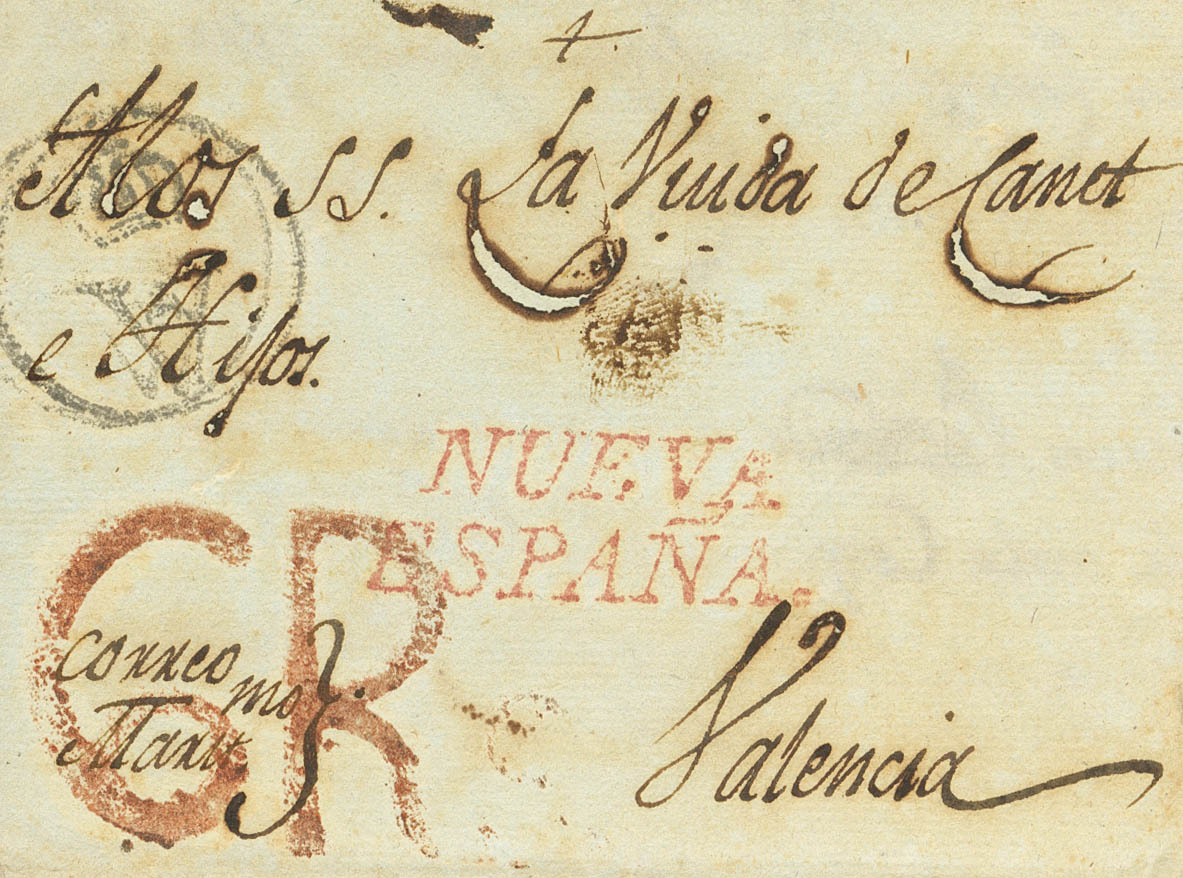 A los SS. La Viuda de Canet
e Hijos.
NUEVA
ESPAÑA.
correo
Marit.mo
Valencia